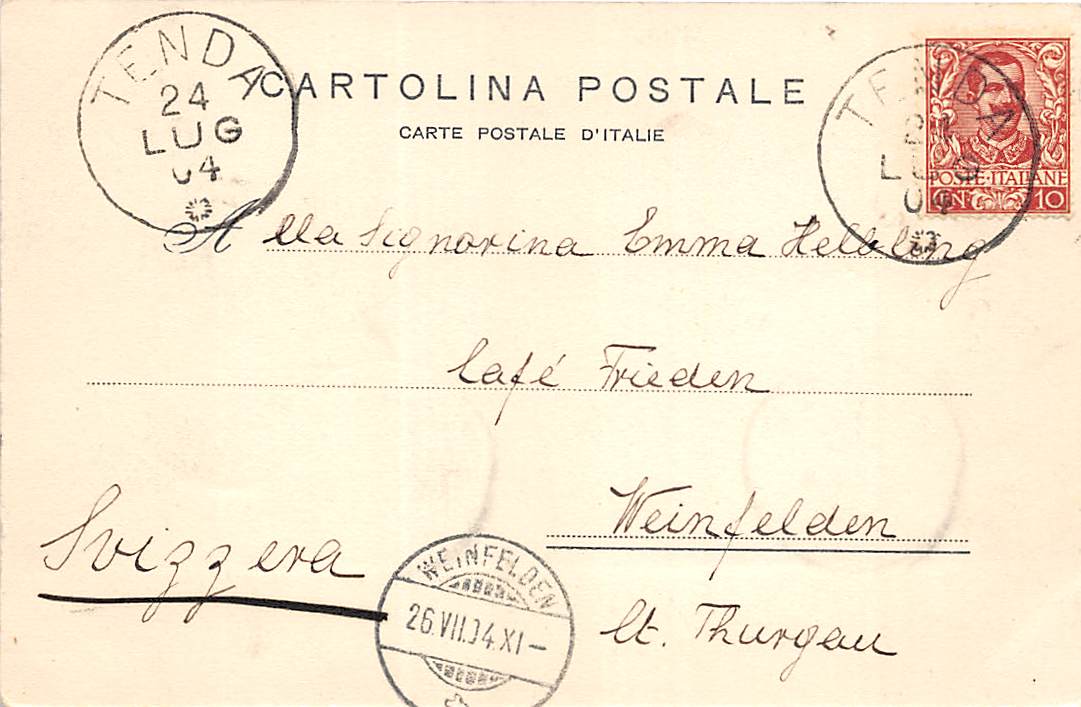 TENDA
24
LUG
04
CARTOLINA POSTALE
CARTE POSTALE D'ITALIE
TENDA
24
LUG
04
POSTE·ITALIANE
CENT. 10
Alla Signorina Emma Helbling
Café Frieden
Weinfelden
Svizzera
Ct. Thurgau
WEINFELDEN
26.VII.04.XI–